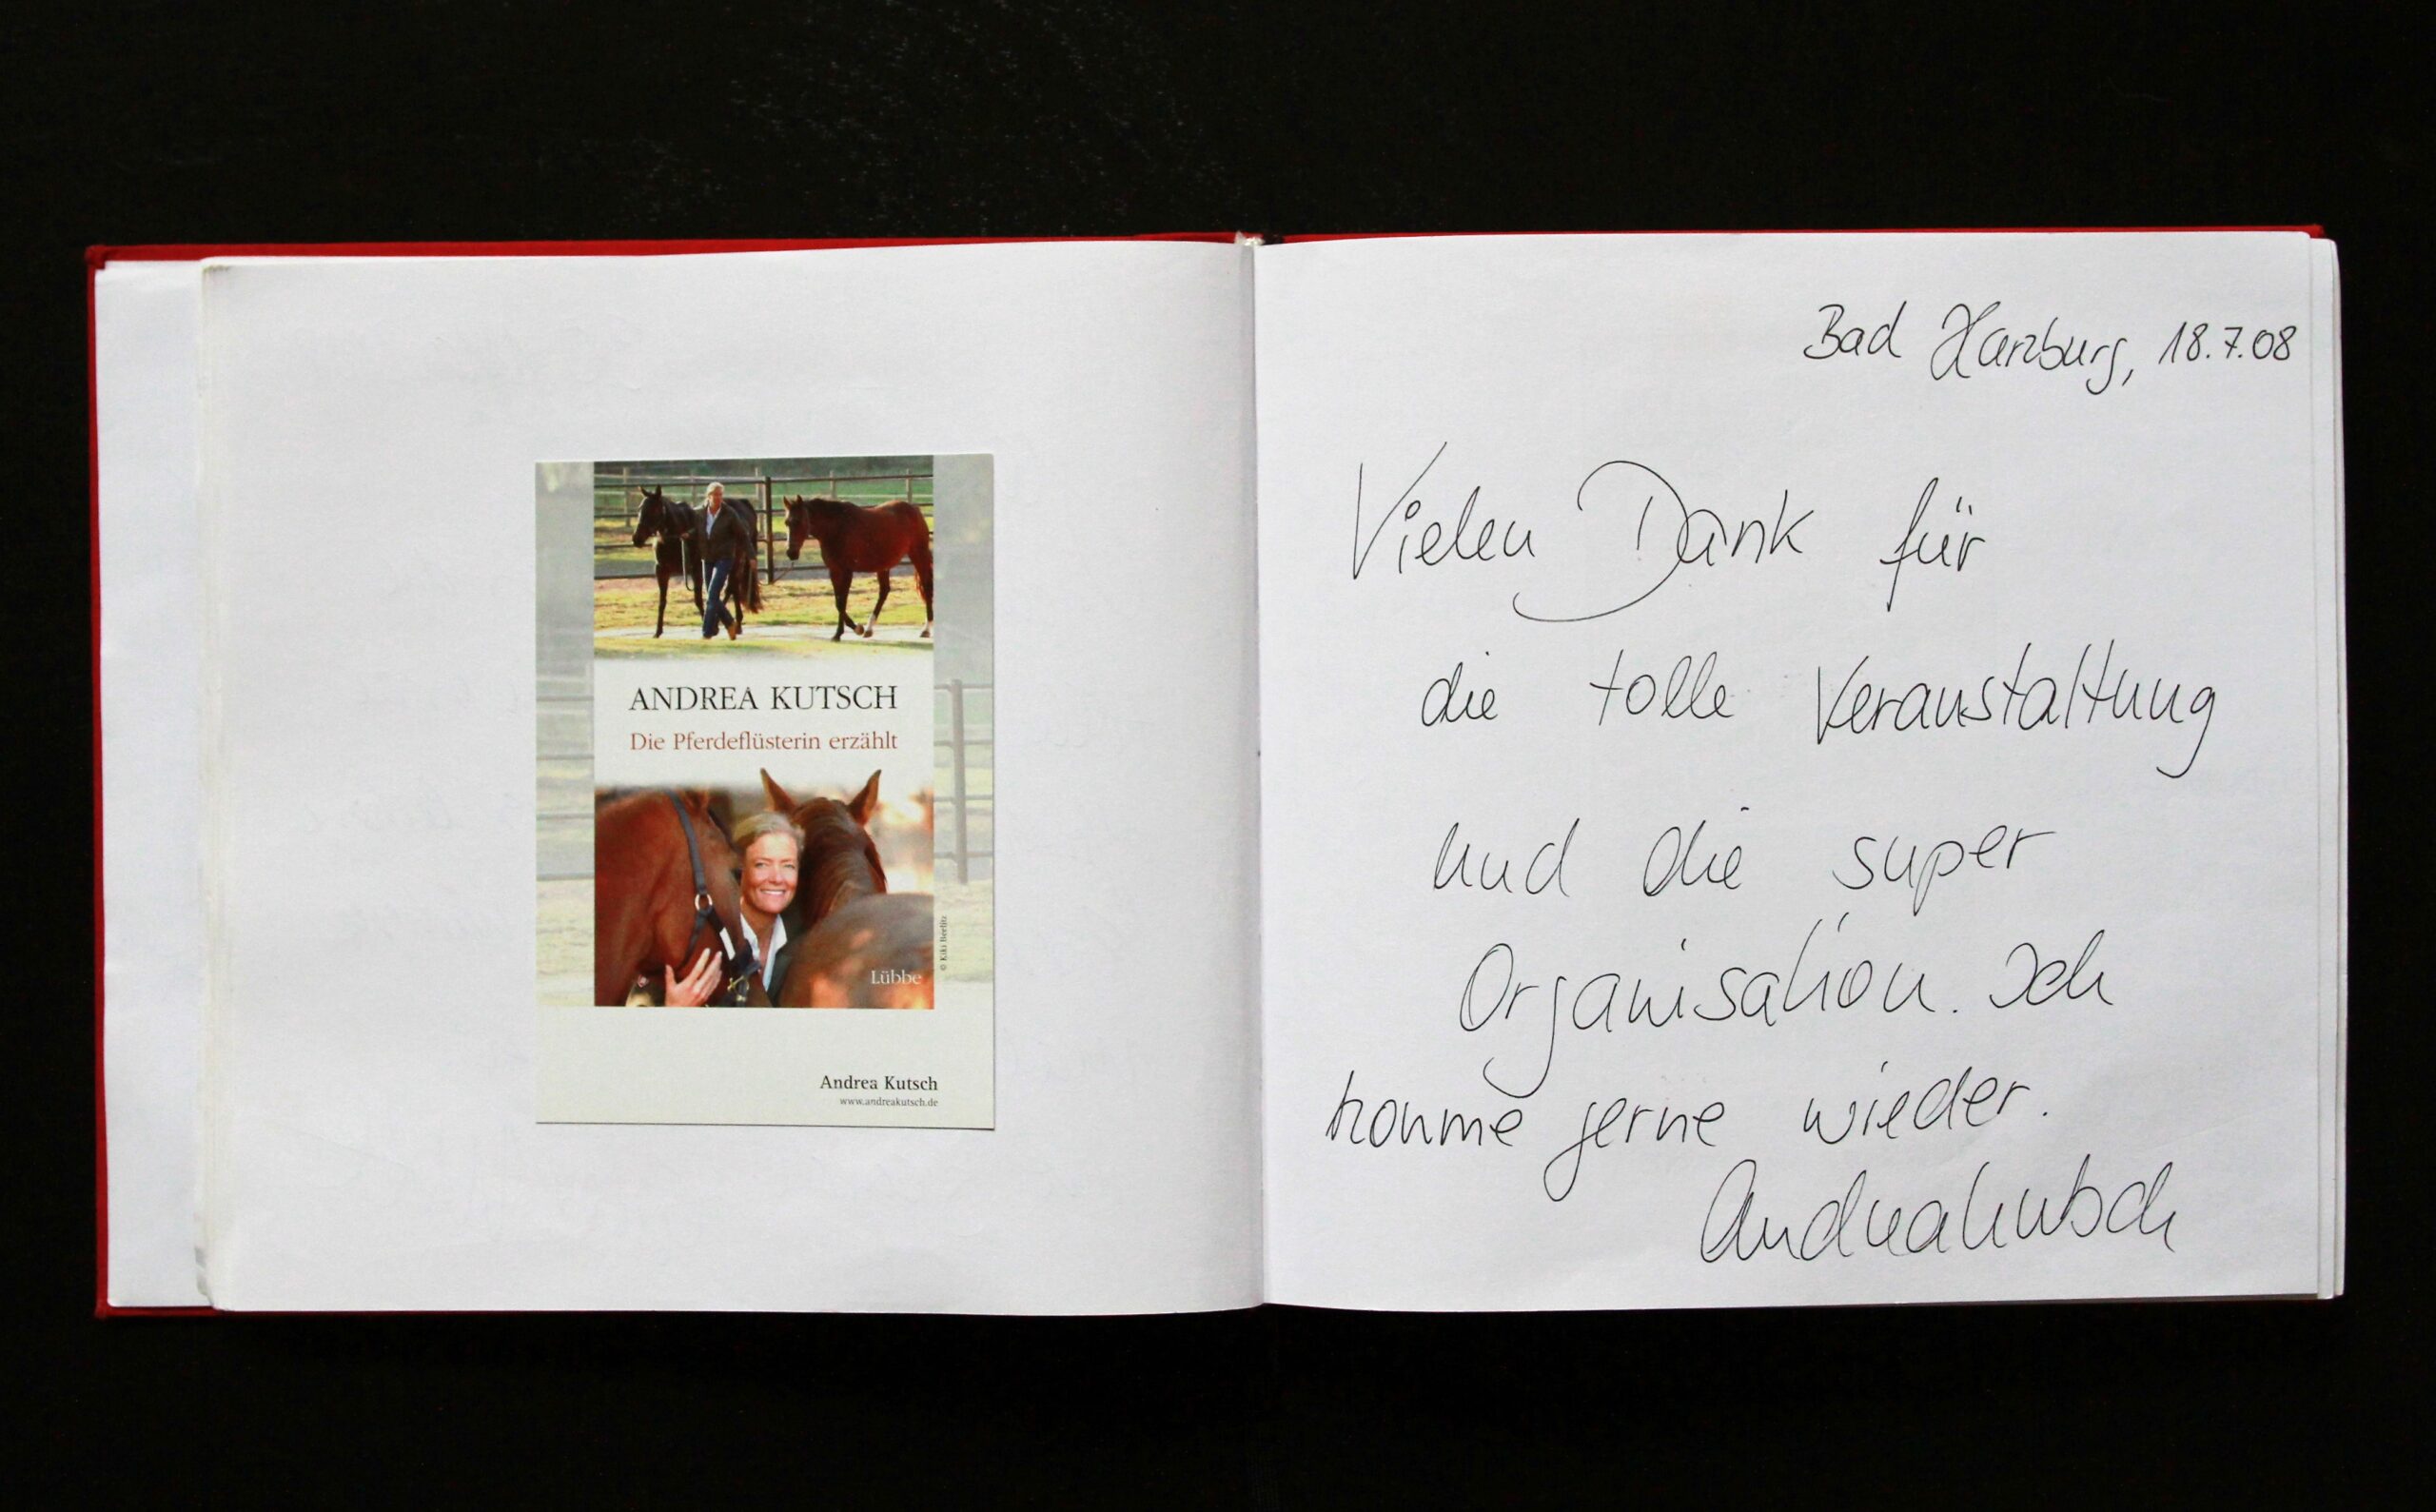 ANDREA KUTSCH
Die Pferdeflüsterin erzählt
Lübbe
© Kiki Beelitz
Andrea Kutsch
www.andreakutsch.de
Bad Harzburg, 18.7.08
Vielen Dank für
die tolle Veranstaltung
und die super
Organisation. Ich
komme gerne wieder.
Andrea Kutsch